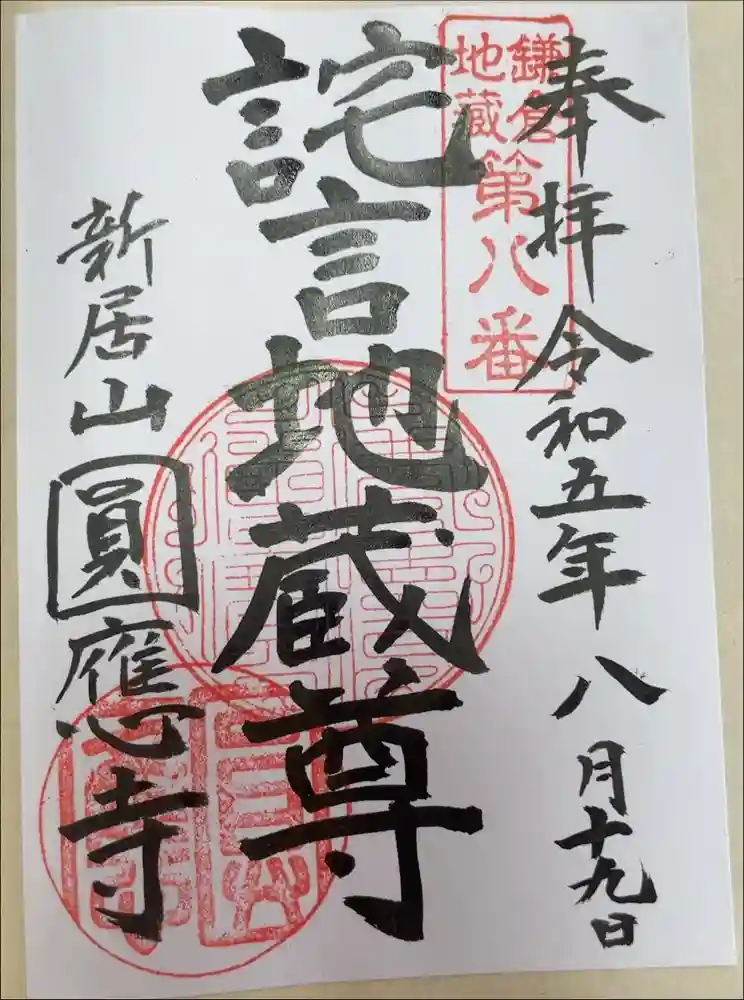 奉拝 令和五年 八月十九日
鎌倉
地蔵
第八番
詫言地蔵尊
新居山 圓應寺